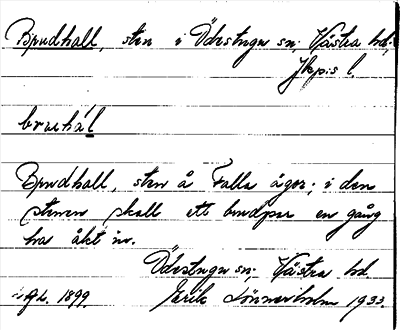 Brudhall, sten i Ödestugu sn; Västra hd;
Jkp:s l.
bruhál
Brudhall, sten å Falla ägor; i den
stenen skall ett brudpar en gång
ha åkt in.
Ödestugu sn; Västra hd.
1899. Erik Lönnerholm 1933.